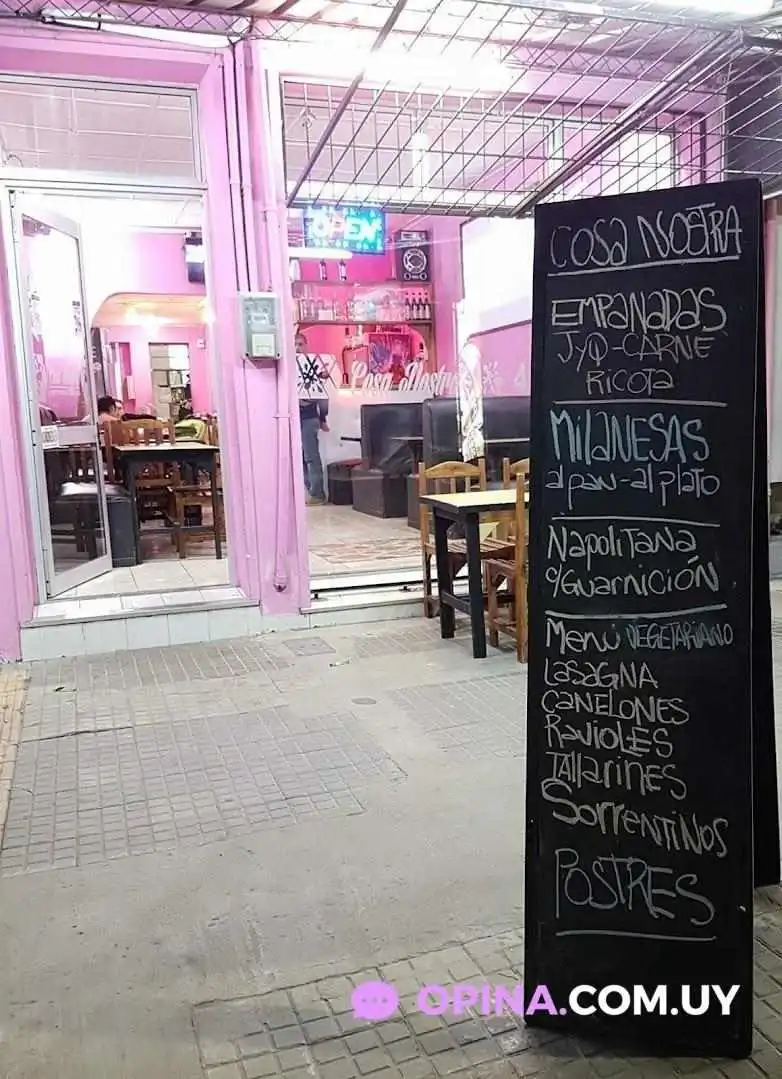 OPEN
Cosa Nostra
COSA NOSTRA
EMPANADAS
JyQ-CARNE
RICOTA
MILANESAS
al pan-al plato
NapoliTana
c/Guarnición
Menú VEGETARIANO
LASAGNA
CANELONES
RavioLES
TAllarinES
SorrentiNOS
POSTRES
OPINA.COM.UY